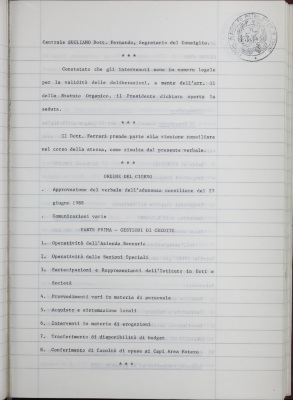 Centrale GIULIANO Dott. Fernando, Segretario del Consiglio.
***
Constatato che gli intervenuti sono in numero legale
per la validità delle deliberazioni, a mente dell'art.
dello Statuto Organico, il Presidente dichiara aperta la
seduta.
***
Il Dott. Ferrari prende parte alla riunione consiliare
nel corso della stessa, come risulta dal presente verbale.
***
ORDINE DEL GIORNO
. Approvazione del verbale dell'adunanza consiliare del 27
giugno 1988
. Comunicazioni varie
PARTE PRIMA - GESTIONI DI CREDITO
1. Operatività dell'Azienda Bancaria
2. Operatività delle Sezioni Speciali
3. Partecipazioni e Rappresentanti dell'Istituto in Enti e
Società
4. Provvedimenti vari in materia di personale
5. Acquisto e sistemazione locali
6. Interventi in materia di erogazioni
7. Trasferimento di disponibilità di budget
8. Conferimento di facoltà di spesa ai Capi Area Estero
***